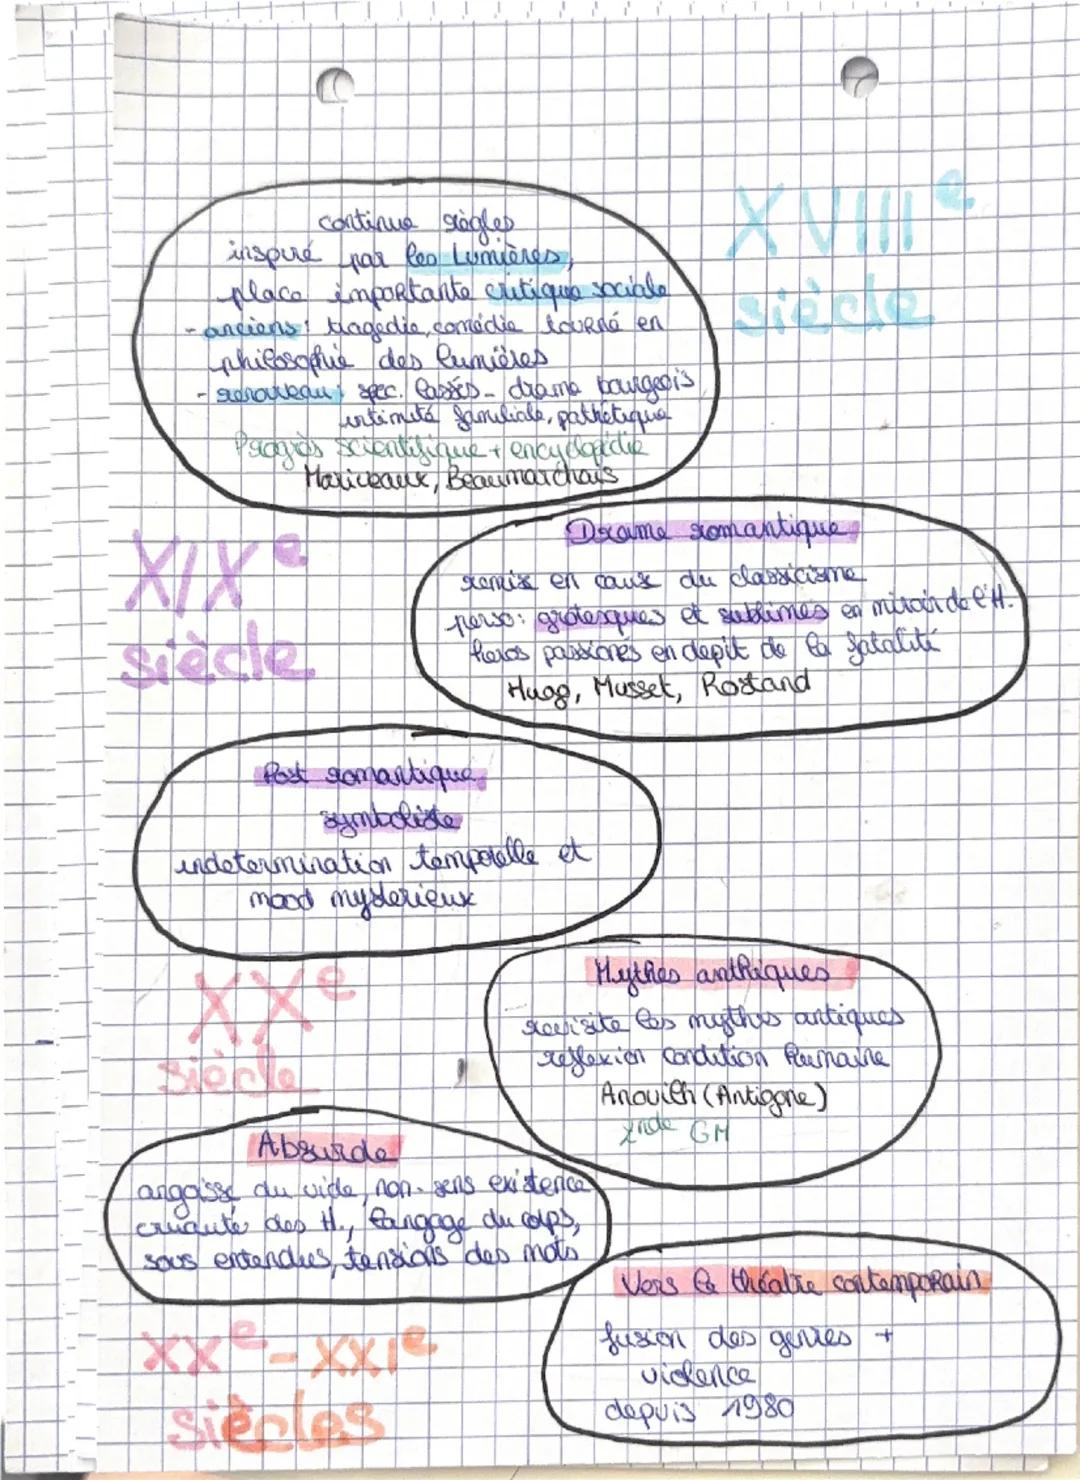 XVIIIe
siècle
continue règles
inspiré par les Lumières,
place importante critique sociale
- anciens: tragedie, comédie tourné en
philosophie des lumières
- renouveau: spec. lassés - drame bourgeois
intimité familiale, pathétique
Progrès scientifique + encyclopédie
Mariveaux, Beaumarchais
XIXe
siècle
Drame romantique
remix en caus du classicisme
perso: grotesques et sublimes en miroir de l'H.
heros passionés en depit de la fatalité
Huog, Musset, Rostand
Post romantique
symboliste
indetermination temporelle et
mood mysterieux
XXe
siècle
Mythes anthiques
revisite les mythes antiques
reflexion condition humaine
Anouilh (Antigone)
2nde GM
Absurde
angoisse du vide, non-sens existence
cruauté des H., langage du corps,
sous entendus, tensions des mots
XXe-XXIe
siècles
Vers le théatre contemporain
fusion des genres +
violence
depuis 1980